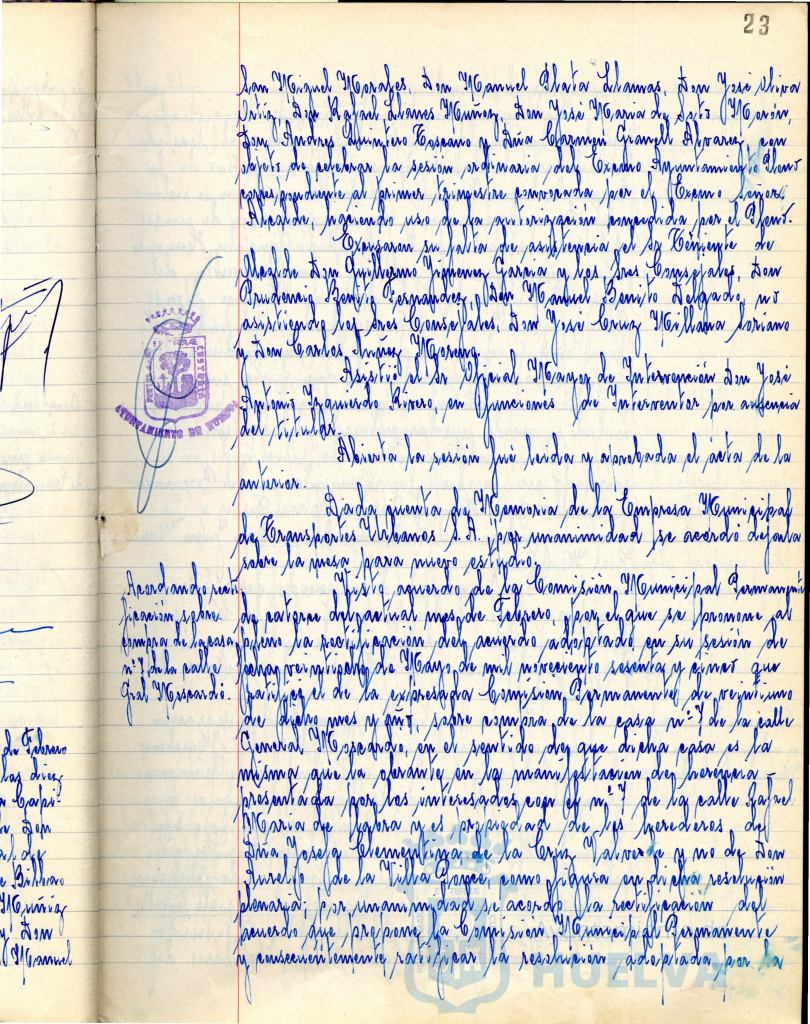 23
San Miguel Morales, Don Manuel Plata Llamas, Don José Oliva
Ortiz, Don Rafael Llanes Muñoz, Don José Maria de Soto Morón,
Don Andres Quintero Toscano y Dña Carmen Granell Alvarez con
objeto de celebrar la sesión ordinaria del Excmo Ayuntamiento Pleno
correspondiente al primer trimestre convocada por el Excmo señor
Alcalde, haciendo uso de la autorización concedida por el Pleno.
Excusaron su falta de asistencia el Sr Teniente de
Alcalde Don Guillermo Jimenez Garcia y los Sres Concejales, Don
Prudencio Benito Fernandez, Don Manuel Benito Delgado, no
asistiendo los Sres Concejales, Don José Cruz Millana Soriano
y Don Carlos Nuñez Moreno.
Asistió el Sr Oficial Mayor de Intervención Don José
Antonio Izquierdo Rivero, en funciones de Interventor por ausencia
del titular.
Abierta la sesión fué leida y aprobada el acta de la
anterior.
Dada cuenta de Memoria de la Empresa Municipal
de Transportes Urbanos S.A. por unanimidad se acordó dejarla
sobre la mesa para nuevo estudio.
Acordando recti
ficación sobre
compra de la casa
nº 7 de la calle
Gral Moscardó.
Visto acuerdo de la Comisión Municipal Permanente
de catorce del actual mes de Febrero, por el que se propone al
pleno la rectificación del acuerdo adoptado en su sesión de
fecha veintiocho de Mayo de mil novecientos sesenta y cinco que
ratificó el de la expresada Comisión Permanente de veintiuno
de dicho mes y año, sobre compra de la casa nº 7 de la calle
General Moscardo, en el sentido de que dicha casa es la
misma que la obrante en la manifestación de herencia
presentada por los interesados con el nº 7 de la calle Rafael
Maria de Labra y es propiedad de los herederos de
Dña Josefa Clementina de la Cruz Valverde y no de Don
Aurelio de la Villa Ponce, como figura en dicha resolución
plenaria; por unanimidad se acordó la rectificación del
acuerdo que propone la Comisión Municipal Permanente
y consecuentemente ratificar la resolución adoptada por la
de Febrero
las diez
Don
de Bilbao
Muñiz
y Don
Manuel
HUELVA